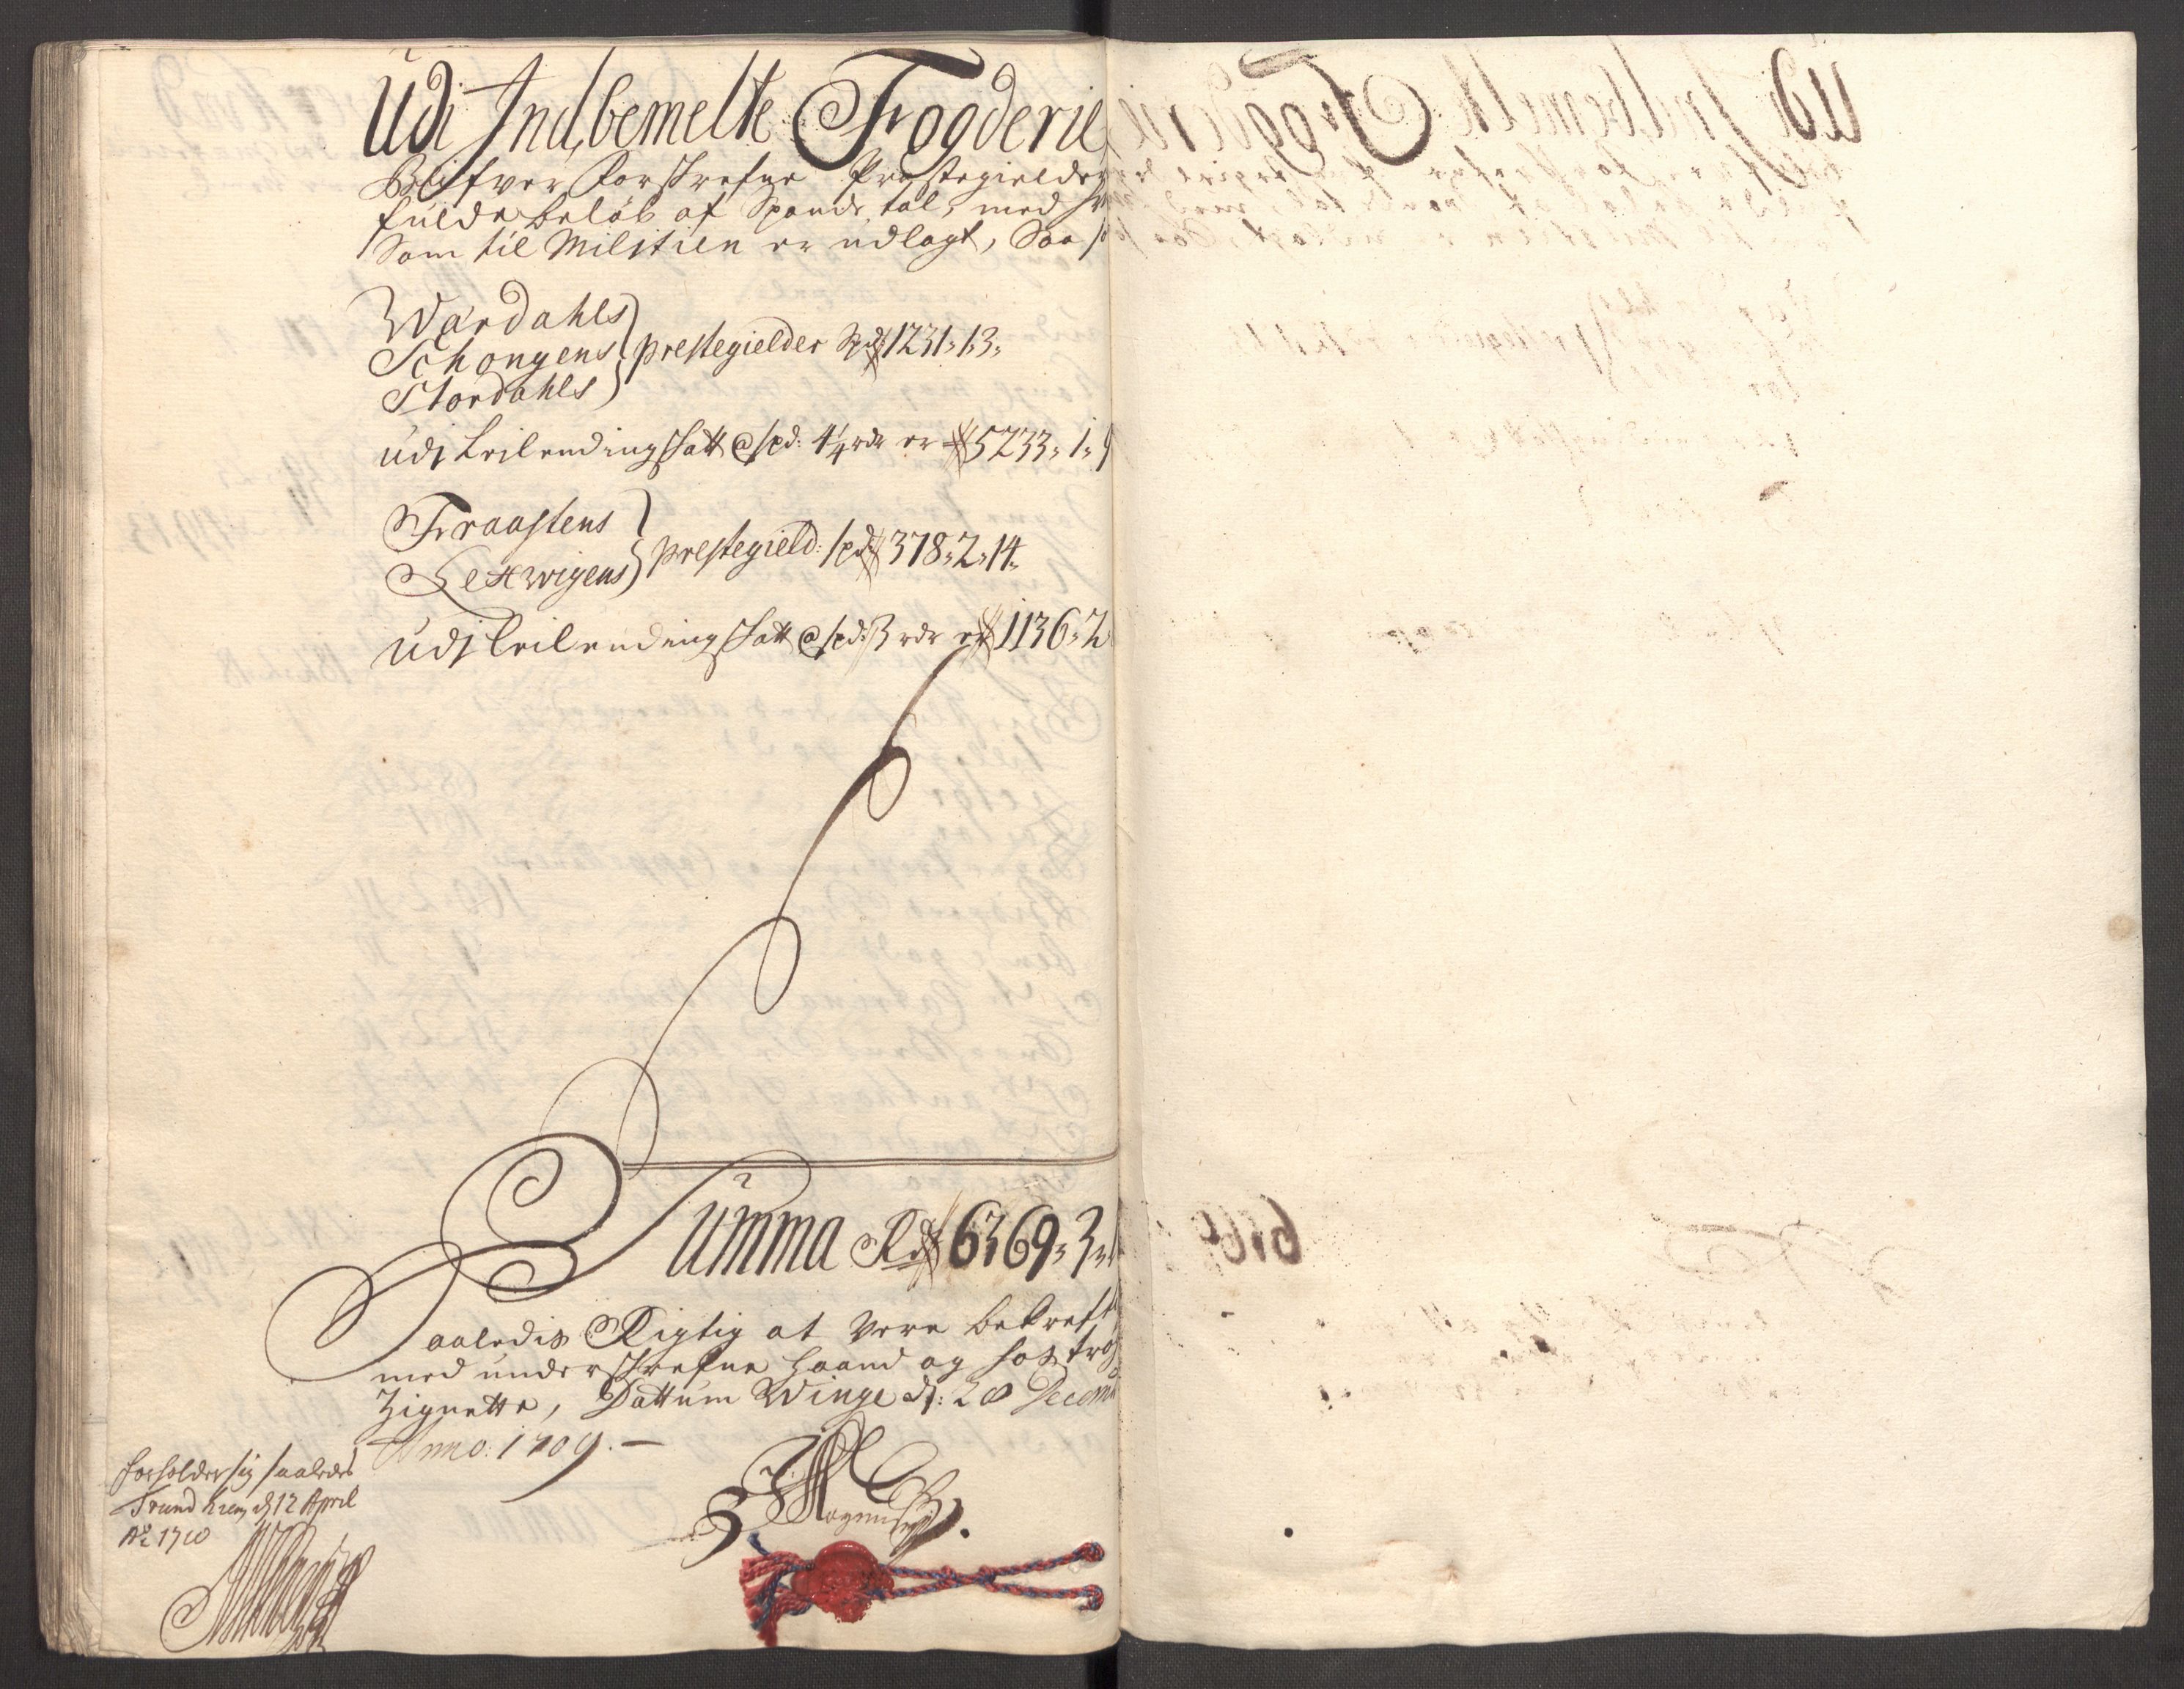 Udi Indbemelte Fogderie
Blifver forskrefne Præstegielders
fulde beløb af Spande tal, med
Som til Militien er udlagt, Saa
Wærdahls
Schongens prestegielder Spd 1231. 1. 3.
Stordahls
udj Leilendingskatt @ spd: 4 1/4 rdr er 5233. 1.
Fraastens
Lexwigens prestegield: spd 378. 2. 14.
udj Leilendingskatt @ spd: 3 rdr er 1136. 2
Summa Rd 6369. 3.
Saaledis Rigtig at Vere bekreft
med underskrefne haand og hostrøgt
Zignette, Dattum Winge dj: 28 Decemb
Anno: 1709. –
forholder sig saaledes
Trundhiem dj 12 April
Ao 1710